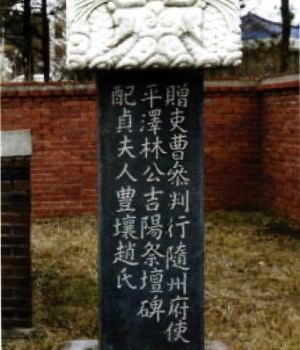 贈吏曹叅判行隨州府使
平澤林公吉陽祭壇碑
配貞夫人豐壤趙氏